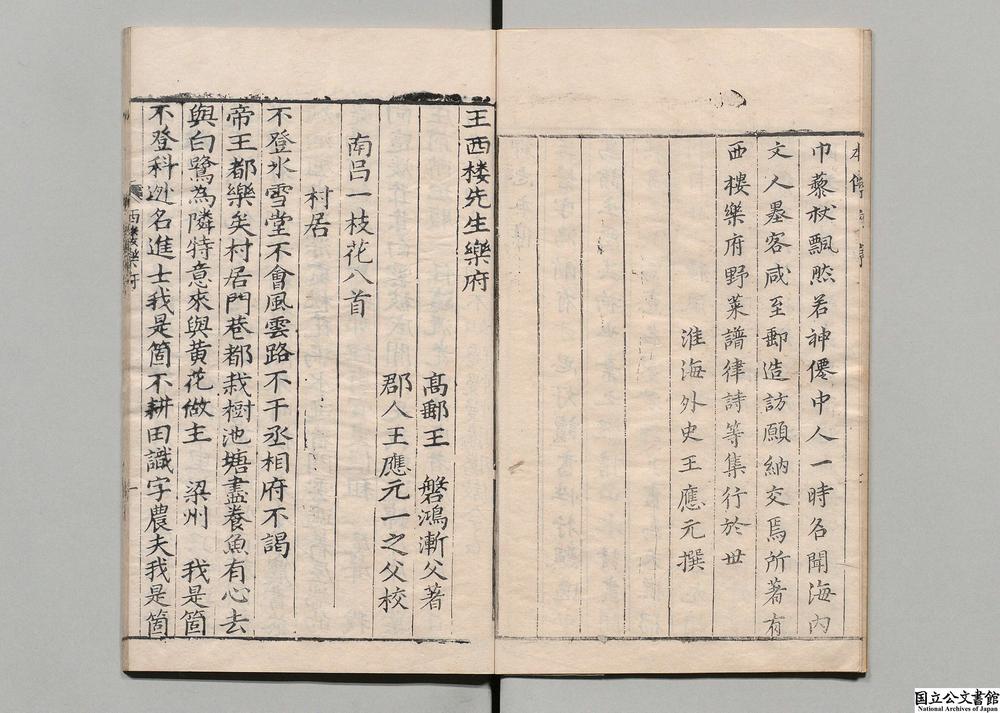 巾藜杖飄然若神僊中人一時名聞海內
文人墨客咸至郵造訪願納交焉所著有
西樓樂府野菜譜律詩等集行於世
淮海外史王應元撰
王西樓先生樂府
高郵王　磐鴻漸父著
郡人王應元一之父校
南呂一枝花八首
村居
不登氷雪堂不會風雲路不干丞相府不謁
帝王都樂矣村居門巷都栽樹池塘盡養魚有心去
與白鷺為隣特意來與黄花做主　梁州　我是箇
不登科逃名進士我是箇不耕田識字農夫我是箇
西樓樂府
一
国立公文書館
National Archives of Japan